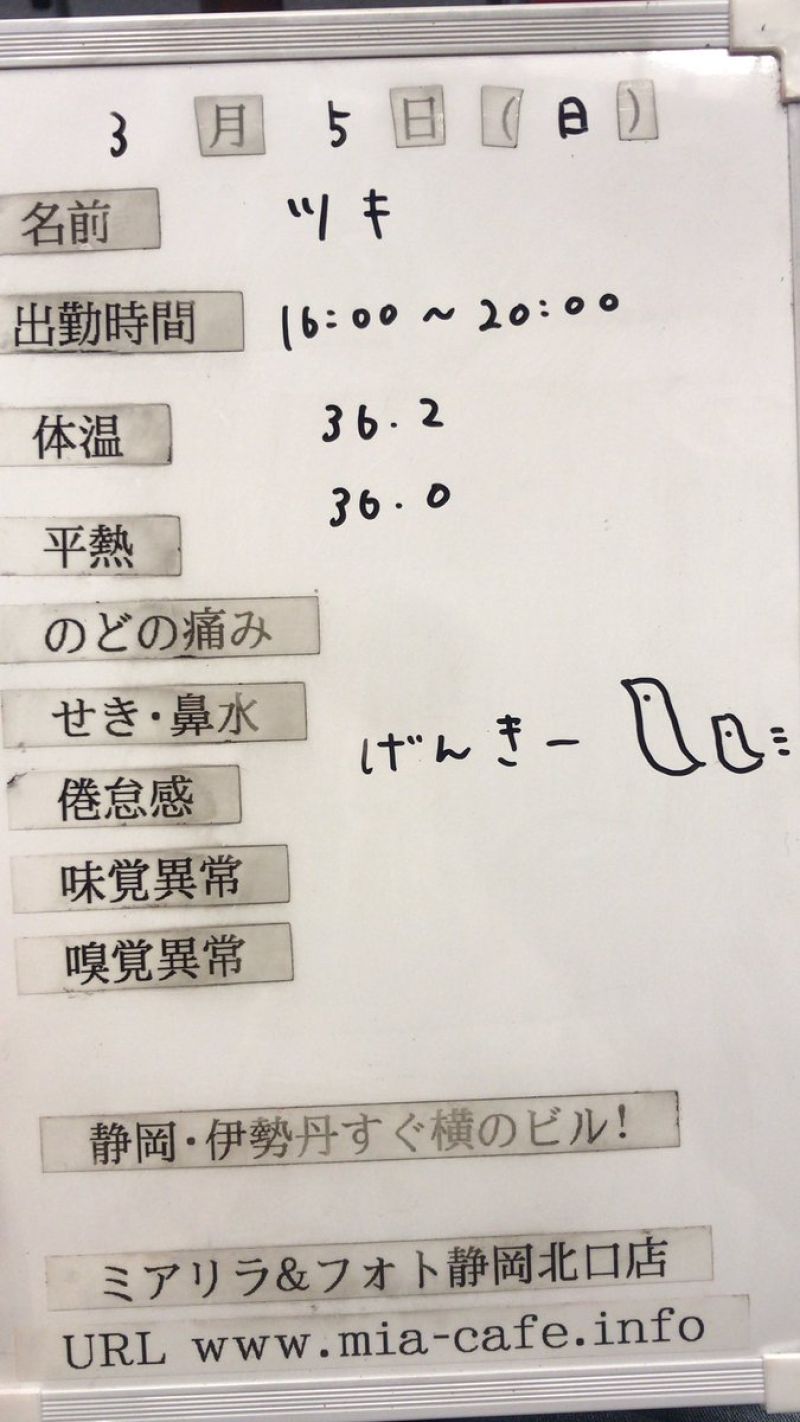 3月5日(日)
名前 ツキ
出勤時間 16:00~20:00
体温 36.2
平熱 36.0
のどの痛み
せき・鼻水 げんきー
倦怠感
味覚異常
嗅覚異常
静岡・伊勢丹すぐ横のビル!
ミアリラ&フォト静岡北口店
URL www.mia-cafe.info